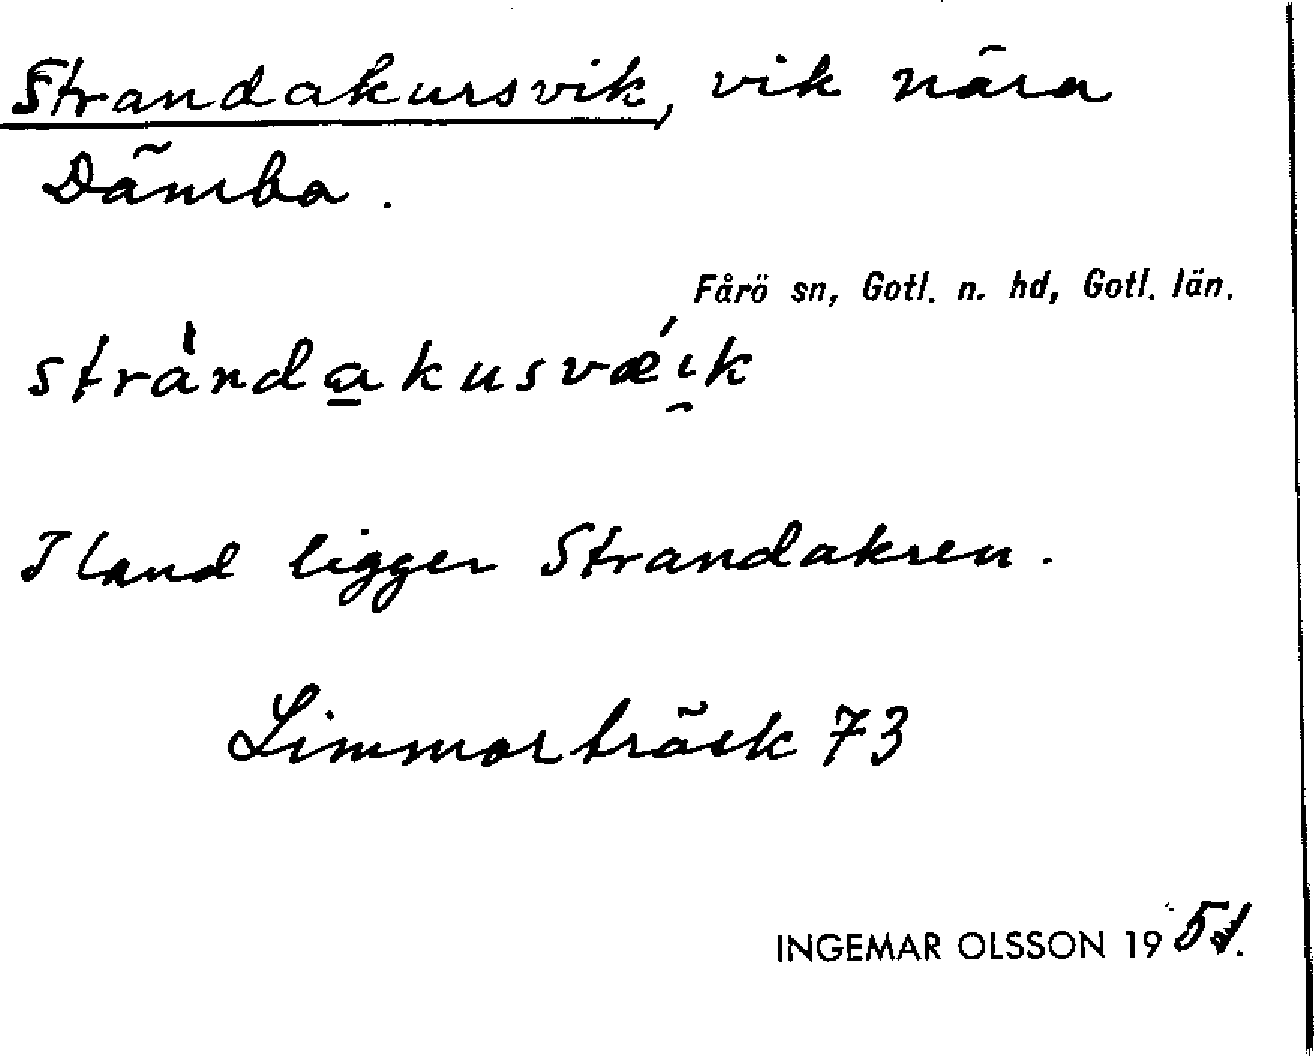 Strandakursvik, vik nära
Dämba.
Fårö sn, Gotl. n. hd, Gotl. län.
strànda̲kusvǽi̯k
I land ligger Strandakren.
Limmorträsk 73
INGEMAR OLSSON 1951.